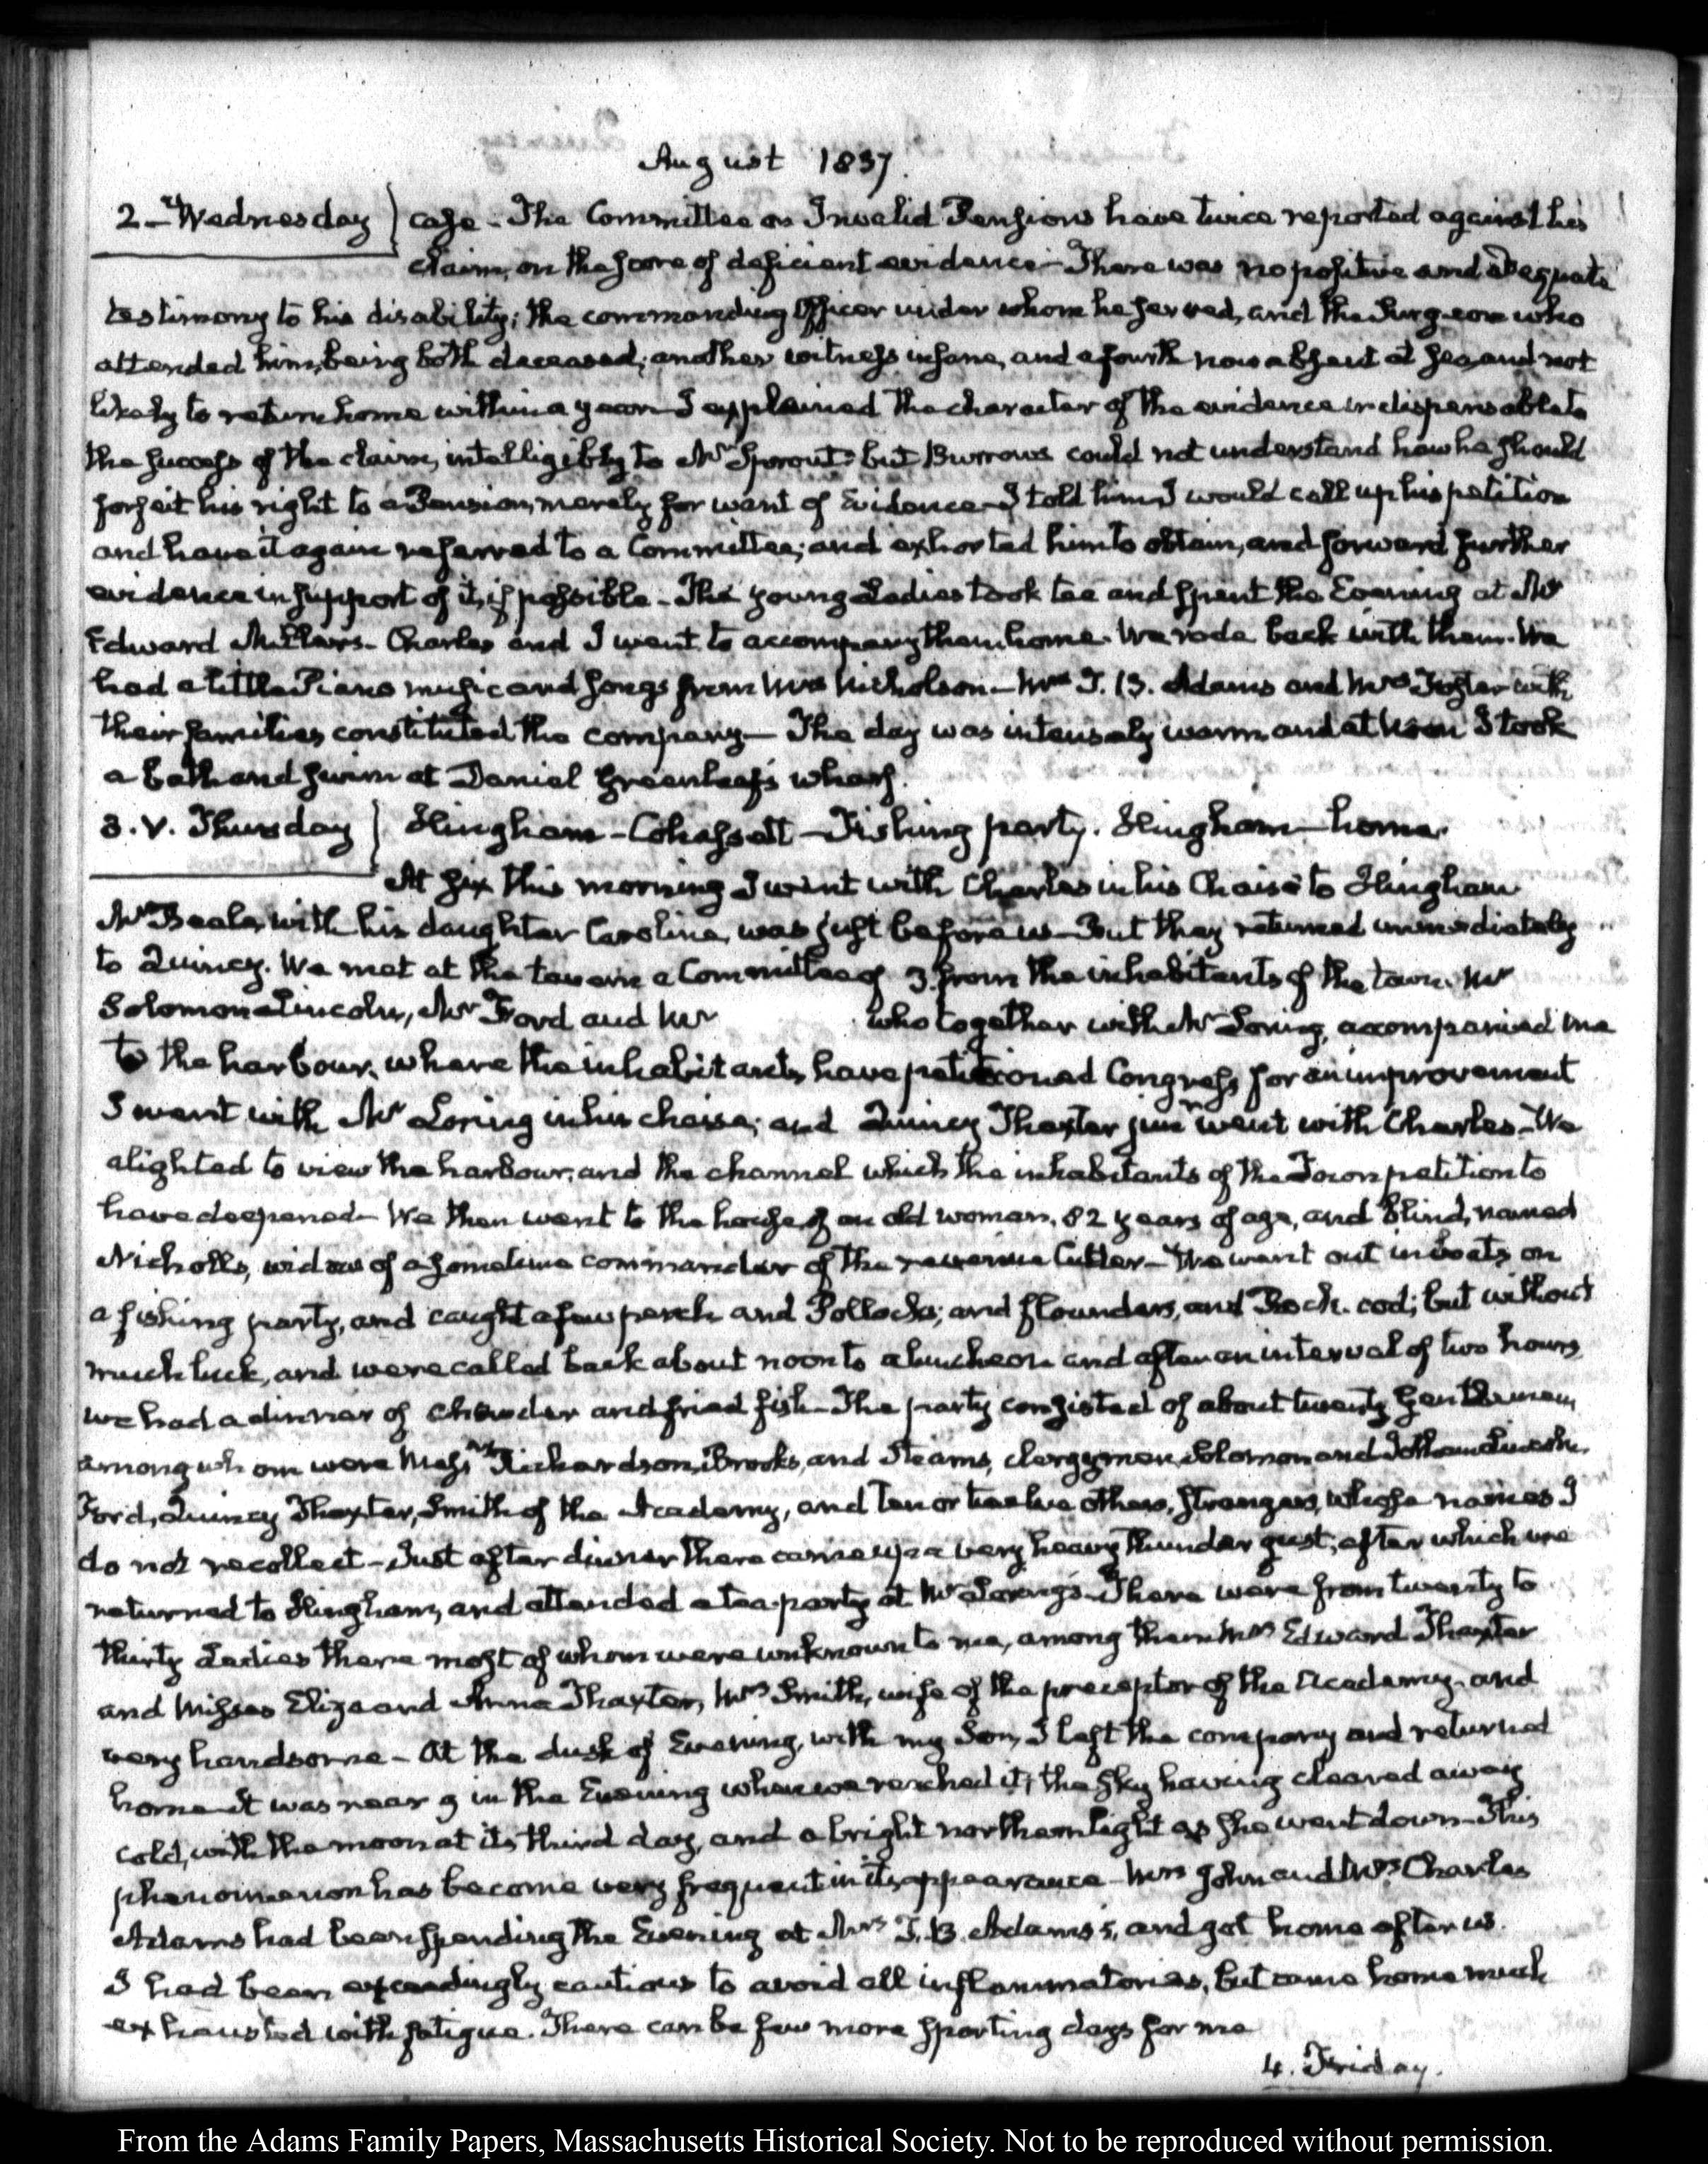 August 1837.
2. Wednesday } case - The Committee on Invalid Pensions have twice reported against his
claim, on the score of deficient evidence - There was no positive and adequate
testimony to his disability; the commanding Officer under whom he served, and the Surgeon who
attended him, being both deceased; another witness insane, and a fourth now absent at sea, and not
likely to return home within a year - I explained the character of the evidence indispensable to
the success of the claim, intelligibly to Mr Sprout: but Burrows could not understand how he should
forfeit his right to a Pension, merely for want of Evidence - I told him I would call up his petition
and have it again referred to a Committee; and exhorted him to obtain, and forward further
evidence in support of it, if possible - The young Ladies took tea and spent the Evening at Mr
Edward Millers - Charles and I went to accompany them home. We rode back with them. We
had a little Piano music and songs from Mrs Nicholson - Mrs T. B. Adams and Mrs Foster with
their families constituted the company - The day was intensely warm and at Noon I took
a bath and swim at Daniel Greenleaf's wharf.
3. V. Thursday } Hingham - Cohassett - Fishing party. Hingham - home.
At six this morning I went with Charles in his Chaise to Hingham
Mr Beale, with his daughter Caroline, was just before us - But they returned immediately
to Quincy. We met at the tavern a Committee of 3 from the inhabitants of the town. Mr
Solomon Lincoln, Mr Ford and Mr who together with Mr Loring, accompanied me
to the harbour, where the inhabitants have petitioned Congress for an improvement
I went with Mr Loring in his chaise; and Quincy Thaxter junr went with Charles - We
alighted to view the harbour, and the channel which the inhabitants of the Town petition to
have deepened - We then went to the house of an old woman, 82 years of age, and blind, named
Nicholls, widow of a sometime commander of the revenue Cutter - We went out in boats on
a fishing party, and caught a few perch and Pollocks; and flounders, and Rock-cod; but without
much luck, and were called back about noon to a luncheon and after an interval of two hours
we had a dinner of chowder and fried fish - The party consisted of about twenty Gentlemen,
among whom were Messrs Richardson, Brooks, and Stearns, clergymen, Solomon and Jotham Lincoln,
Ford, Quincy Thaxter, Smith of the Academy, and ten or twelve others, strangers, whose names I
do not recollect - Just after dinner there came up a very heavy thunder gust, after which we
returned to Hingham, and attended a tea-party at Mr Loring's - There were from twenty to
thirty Ladies there most of whom were unknown to me, among them Mrs Edward Thaxter
and Misses Eliza and Anna Thaxter, Mrs Smith, wife of the preceptor of the Academy, and
very handsome - At the dusk of Evening, with my Son, I left the company and returned
home - It was near 9 in the Evening when we reached it; the sky having cleared away
cold, with the moon at its third day, and a bright northern light as she went down - This
phenomenon has become very frequent in its appearance - Mrs John and Mrs Charles
Adams had been spending the Evening at Mrs T. B. Adams's, and got home after us.
I had been exceedingly cautious to avoid all inflammatories, but came home much
exhausted with fatigue. There can be few more sporting days for me
4. Friday.
From the Adams Family Papers, Massachusetts Historical Society. Not to be reproduced without permission.